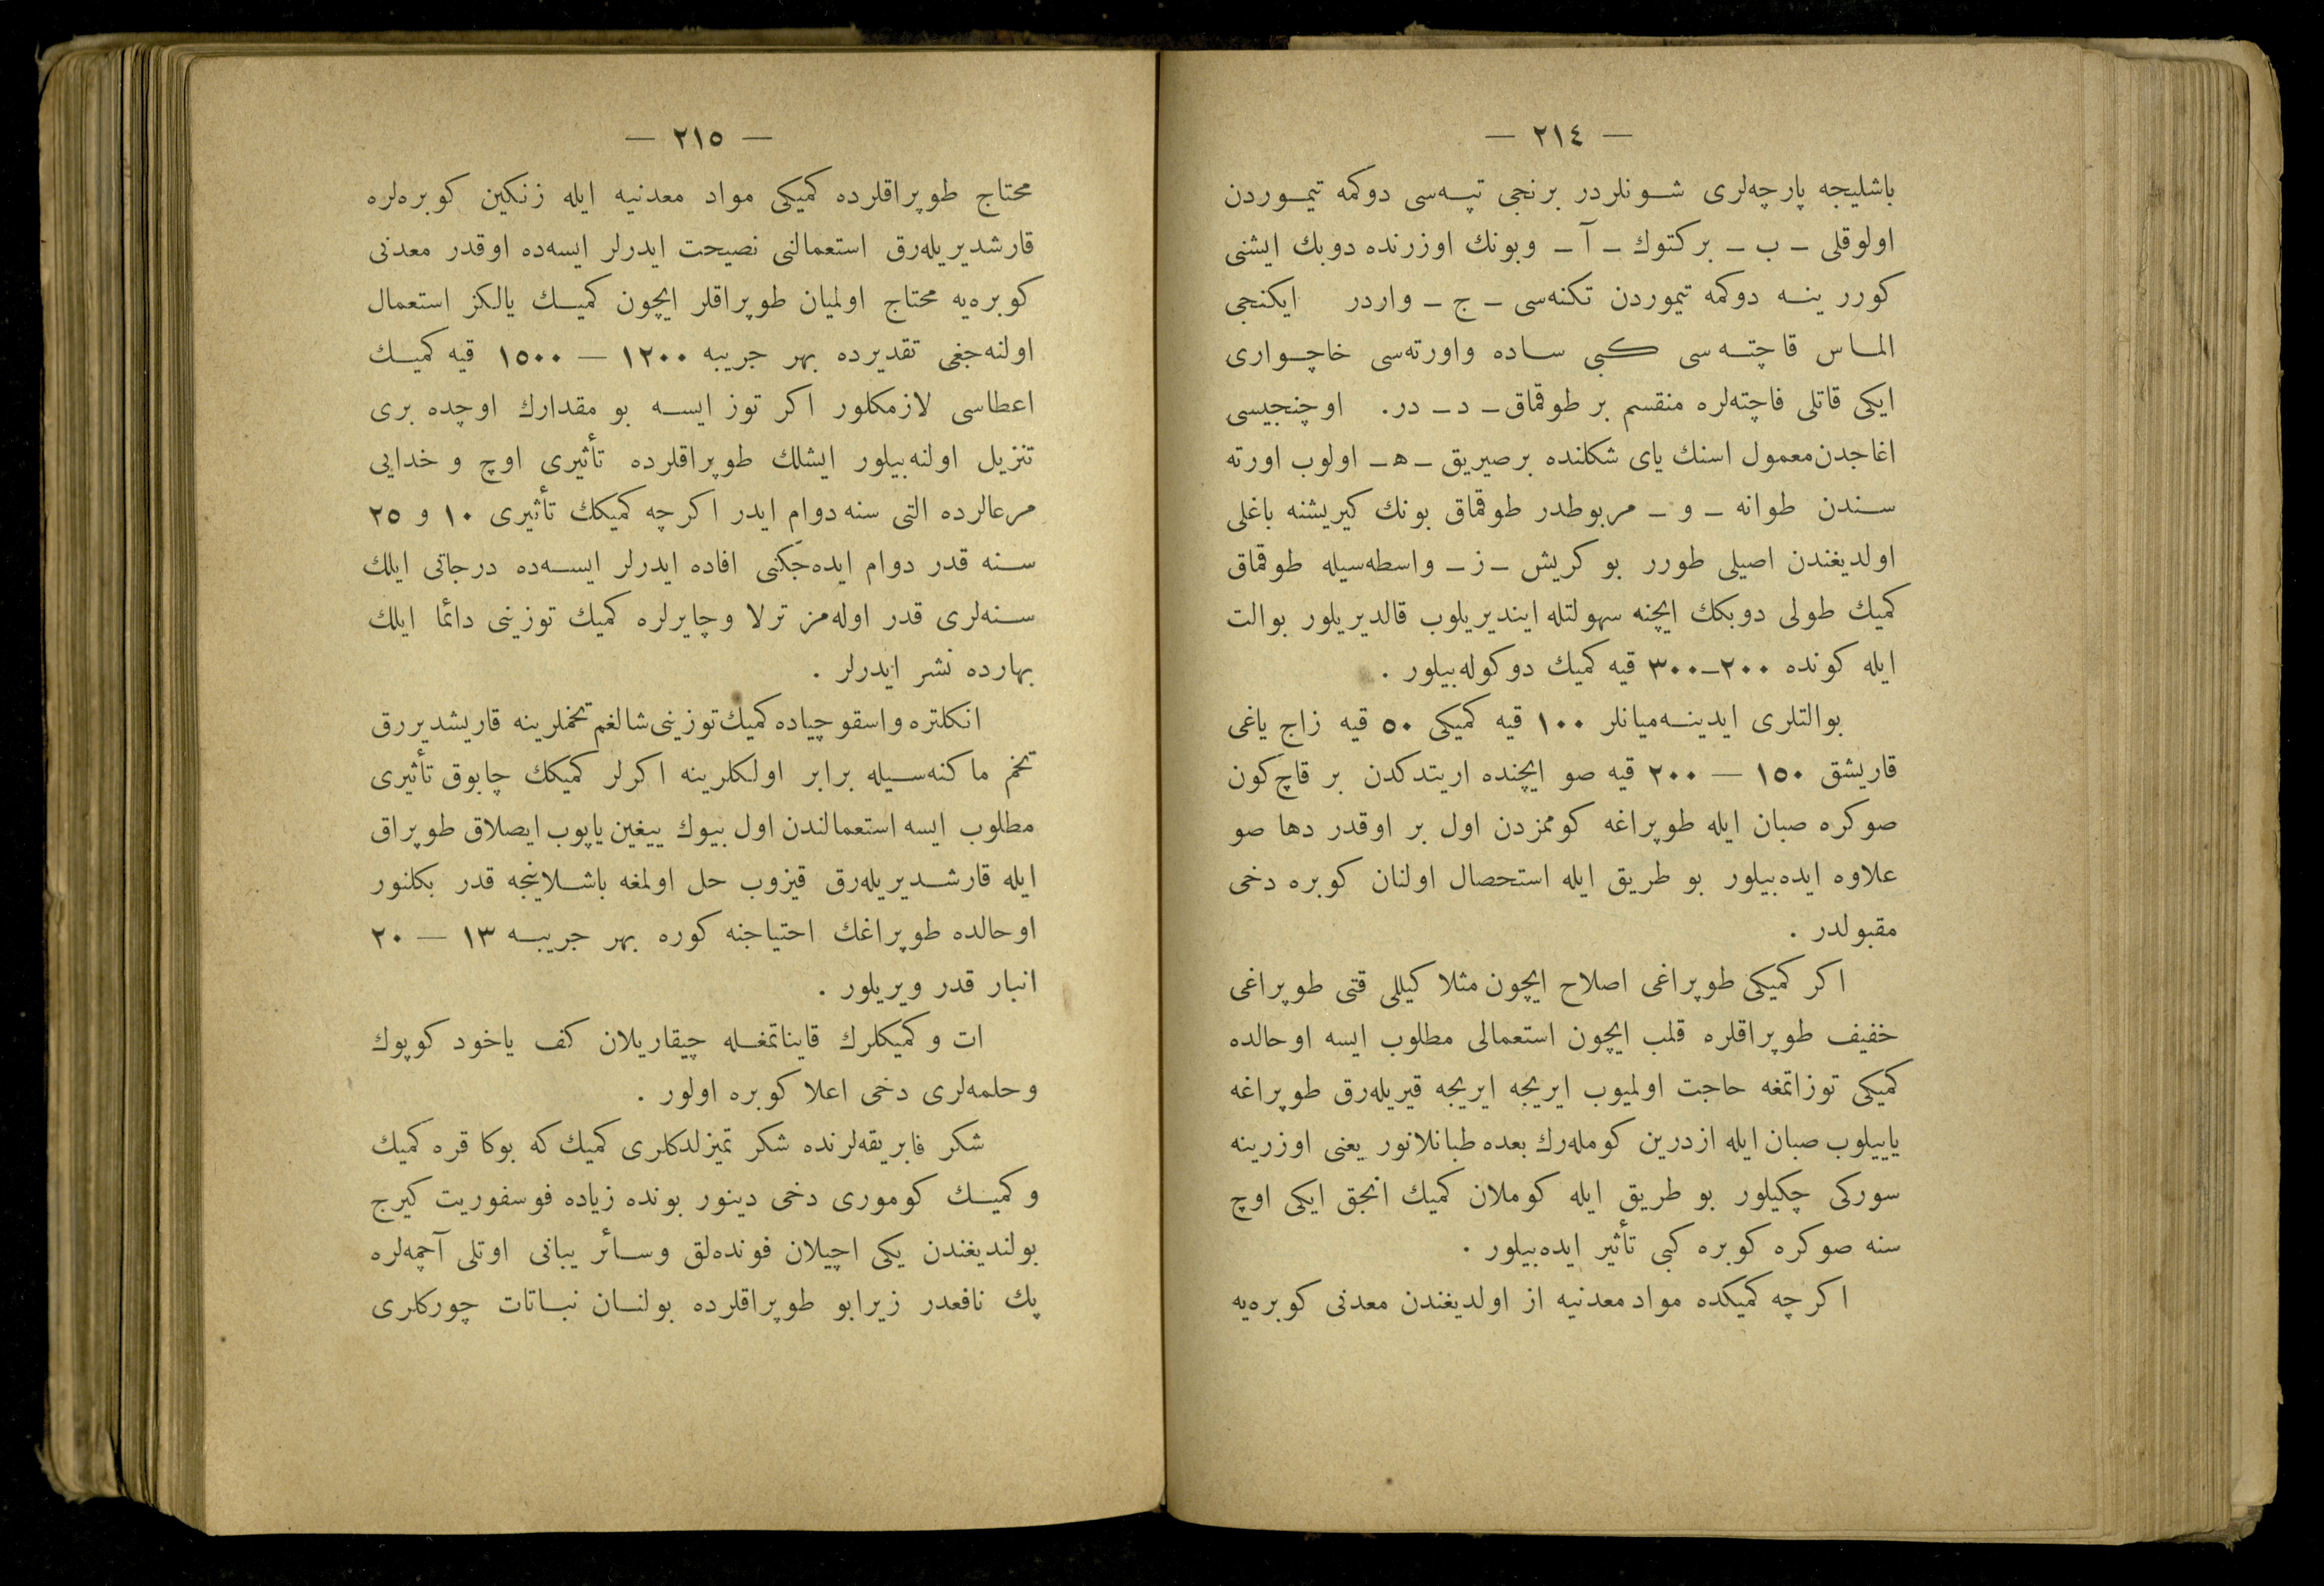 — ٢١٤ —
باشلیجه پارچه‌لری شونلردر برنجی تپه‌سی دوکمه تیموردن
اولوقلی ـ ب ـ برکتوك ـ آ ـ وبونك اوزرنده دوبك ایشنی
کورر ینه دوکمه تیموردن تکنه‌سی ـ ج ـ واردر ایکنجی
الماس قاچته‌سی کبی ساده واورته‌سی خاچواری
ایکی قاتلی قاچته‌لره منقسم بر طوقماق ـ د ـ در. اوچنجیسی
اغاجدن معمول اسنك یای شکلنده برصیریق ـ ه ـ اولوب اورته
سندن طوانه ـ و ـ مربوطدر طوقماق بونك کیریشنه باغلی
اولدیغندن اصیلی طورر بو کریش ـ ز ـ واسطه‌سیله طوقماق
کمیك طولی دوبكك ایچنه سهولتله ایندیریلوب قالدیریلور بوالت
ایله کونده ٢٠٠ـ٣٠٠ قیه کمیك دوکوله‌بیلور .
بوالتلری ایدینه‌میانلر ١٠٠ قیه کمیکی ٥٠ قیه زاج یاغی
قاریشق ١٥٠ — ٢٠٠ قیه صو ایچنده اریتدکدن بر قاچ کون
صوکره صبان ایله طوپراغه کوممزدن اول بر اوقدر دها صو
علاوه ایده‌بیلور بو طریق ایله استحصال اولنان کوبره دخی
مقبولدر .
اکر کمیکی طوپراغی اصلاح ایچون مثلا کیللی قتی طوپراغی
خفیف طوپراقلره قلب ایچون استعمالی مطلوب ایسه اوحالده
کمیکی توزاتمغه حاجت اولمیوب ایریجه ایریجه قیریله‌رق طوپراغه
یاییلوب صبان ایله ازدرین کومله‌رك بعده طبانلانور یعنی اوزرینه
سورکی چکیلور بو طریق ایله کوملان کمیك انجق ایکی اوچ
سنه صوکره کوبره کبی تأثیر ایده‌بیلور .
اکرچه کمیکده مواد معدنیه از اولدیغندن معدنی کوبره‌یه
— ٢١٥ —
محتاج طوپراقلرده کمیکی مواد معدنیه ایله زنکین کوبره‌لره
قارشدیریله‌رق استعمالنی نصیحت ایدرلر ایسه‌ده اوقدر معدنی
کوبره‌یه محتاج اولمیان طوپراقلر ایچون کمیك یالکز استعمال
اولنه‌جغی تقدیرده بهر جریبه ١٢٠٠ — ١٥٠٠ قیه کمیك
اعطاسی لازمکلور اکر توز ایسه بو مقدارك اوچده بری
تنزیل اولنه‌بیلور ایشلك طوپراقلرده تأثیری اوچ و خدایی
مرعالرده التی سنه دوام ایدر اکرچه کمیكك تأثیری ١٠ و ٢٥
سنه قدر دوام ایده‌جکنی افاده ایدرلر ایسه‌ده درجاتی ایلك
سنه‌لری قدر اوله‌مز ترلا وچایرلره کمیك توزینی دائما ایلك
بهارده نشر ایدرلر .
انکلتره واسقوچیاده کمیك توزینی شالغم تخملرینه قاریشدیررق
تخم ماکنه‌سیله برابر اولکلرینه اکرلر کمیكك چابوق تأثیری
مطلوب ایسه استعمالندن اول بیوك ییغین یاپوب ایصلاق طوپراق
ایله قارشدیریله‌رق قیزوب حل اولمغه باشلاینجه قدر بکلنور
اوحالده طوپراغك احتیاجنه کوره بهر جریبه ١٣ — ٢٠
انبار قدر ویریلور .
ات و کمیکلرك قایناتمغله چیقاریلان کف یاخود کوپوك
وحلمه‌لری دخی اعلا کوبره اولور .
شکر فابریقه‌لرنده شکر تمیزلدکلری کمیك که بوکا قره کمیك
و کمیك کوموری دخی دینور بونده زیاده فوسفوریت کیرج
بولندیغندن یکی اچیلان فونده‌لق وسائر یبانی اوتلی آچمه‌لره
پك نافعدر زیرابو طوپراقلرده بولنان نباتات چورکلری